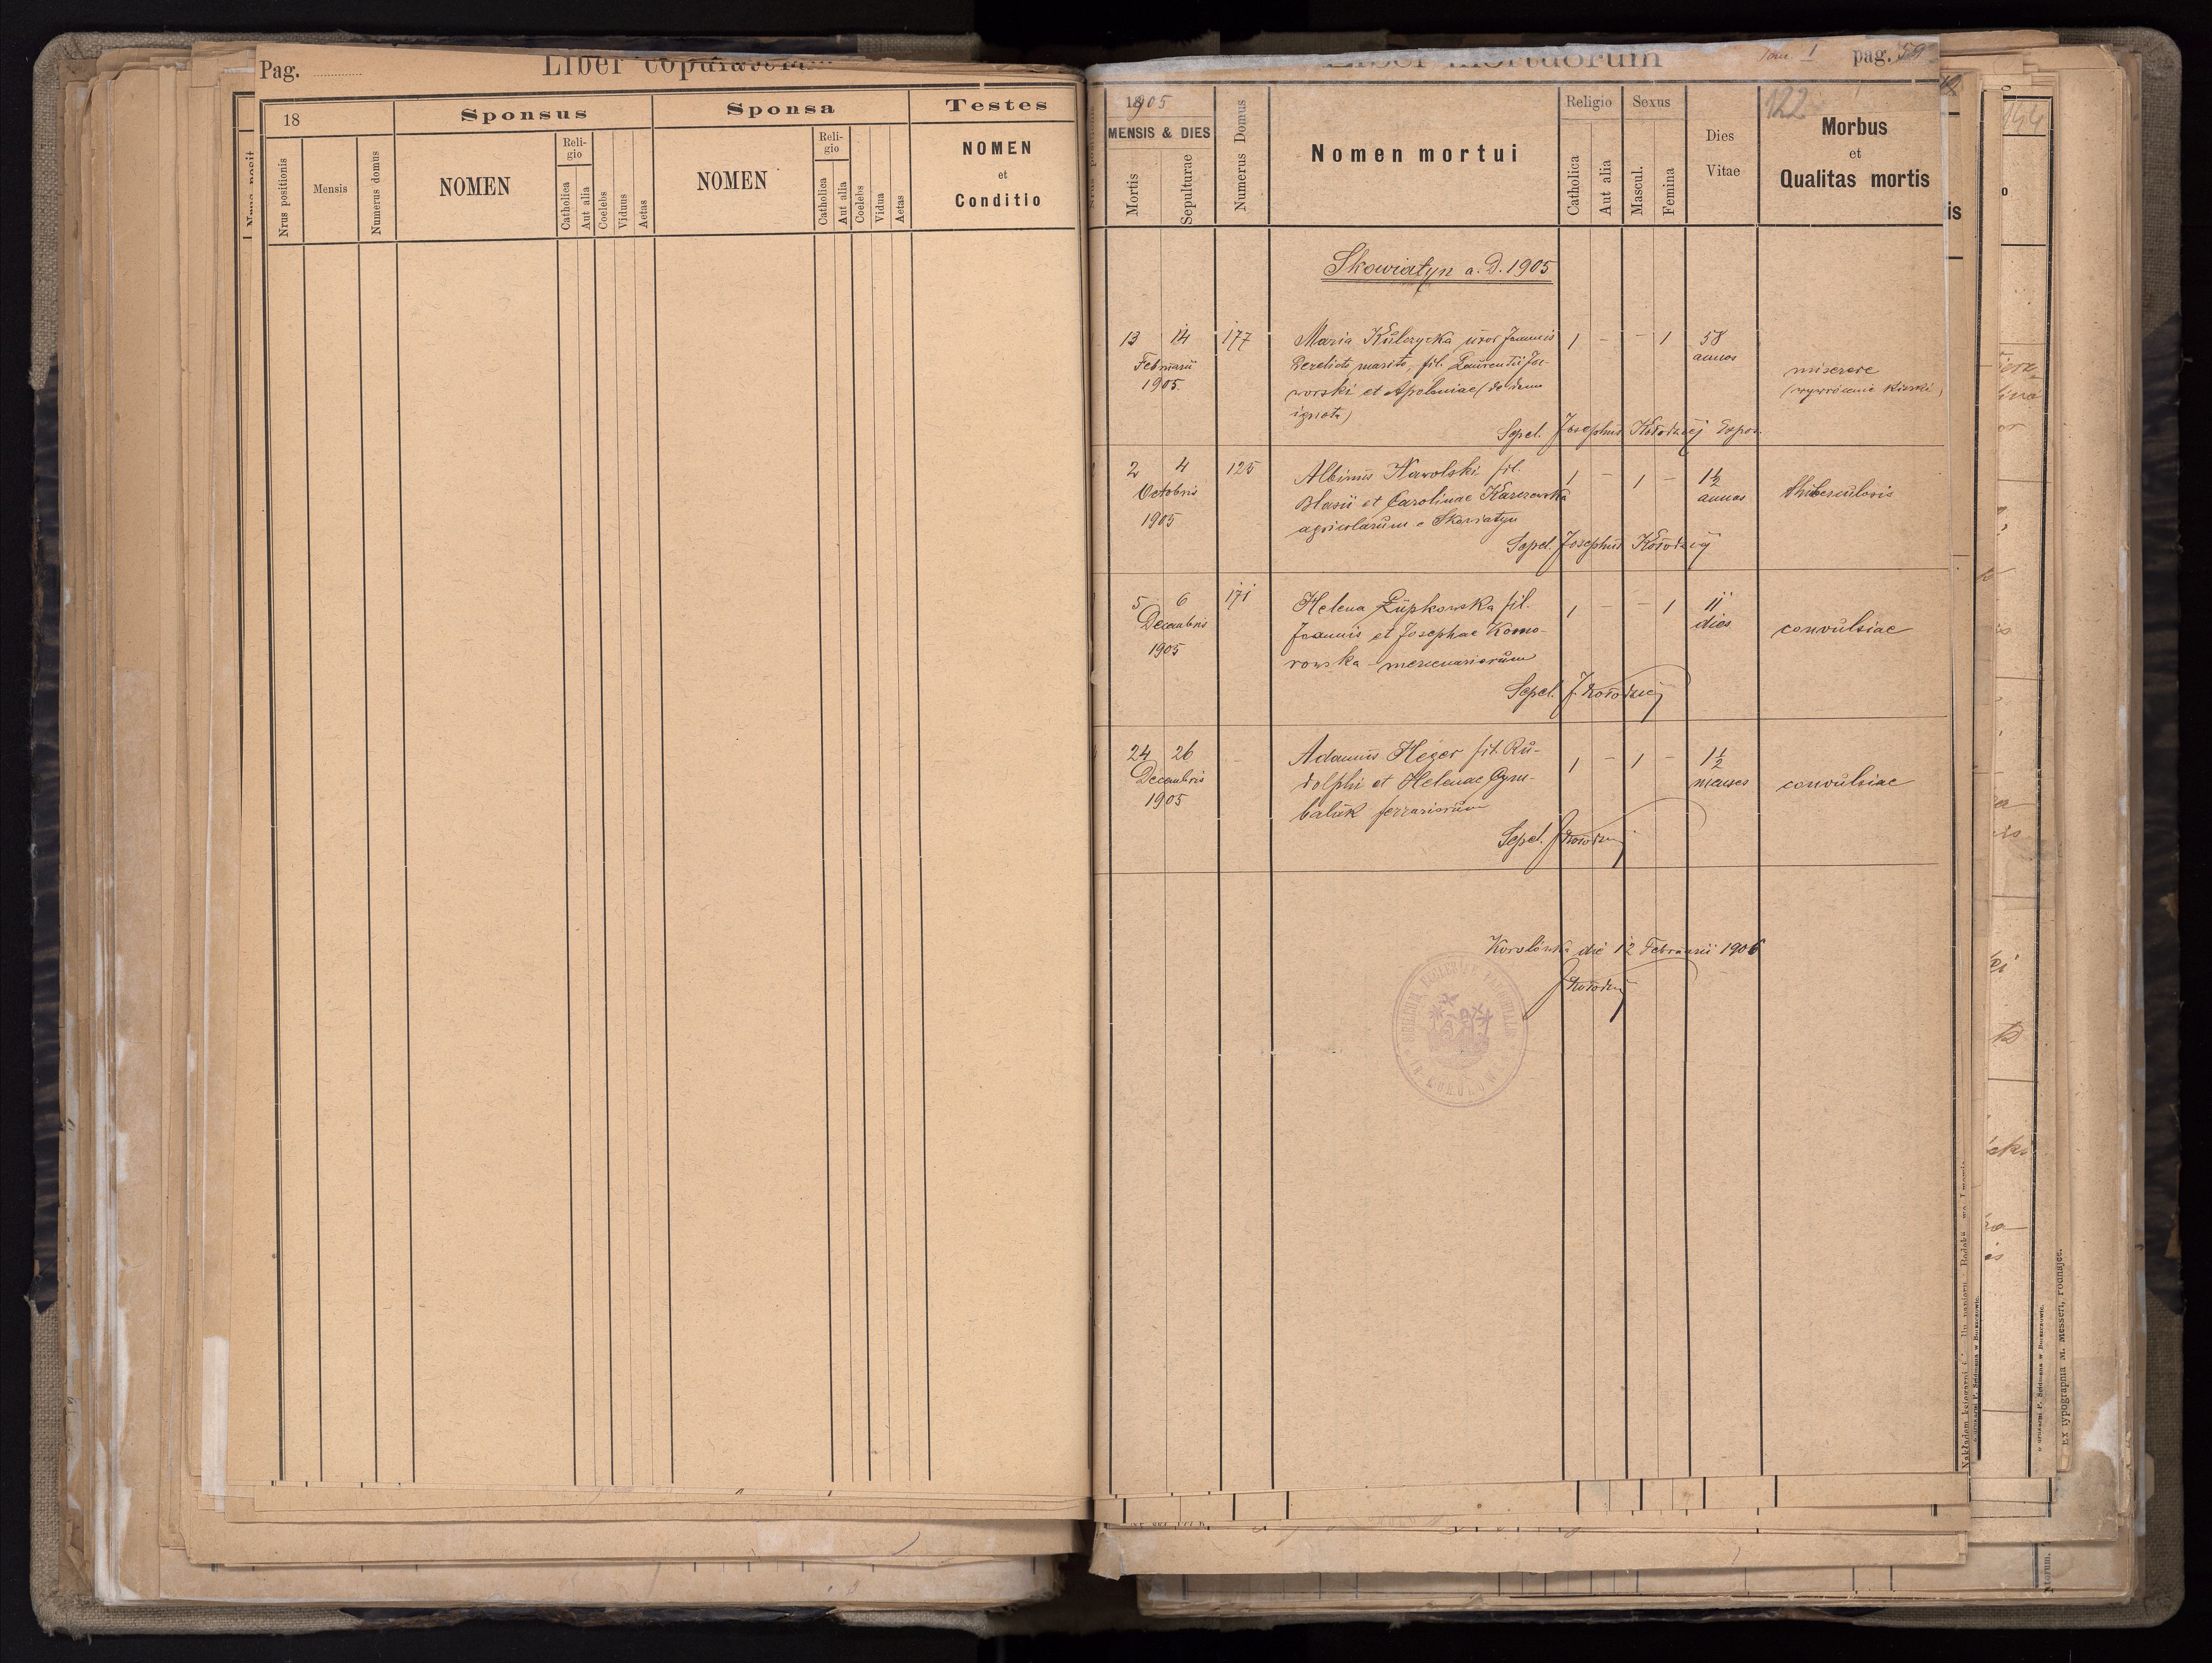 Pag.
Liber copulatorum
18
Sponsus
Sponsa
Testes
Nrus positionis
Mensis
Numerus domus
NOMEN
Reli-
gio
Catholica
Aut alia
Coelebs
Viduus
Aetas
NOMEN
Reli-
gio
Catholica
Aut alia
Coelebs
Vidua
Aetas
NOMEN
et
Conditio
Liber mortuorum
Tom. I
pag. 59
1905
MENSIS & DIES
Mortis
Sepulturae
Numerus Domus
Nomen mortui
Religio
Catholica
Aut alia
Sexus
Mascul.
Femina
Dies
Vitae
122
Morbus
et
Qualitas mortis
Skowiatyn a. D. 1905
13 14 177 Maria Kulczycka uxor Joannis 1 - - 1 58
Februarii
1905
Derelicto marito, fil. Laurentii Ja-
worski et Apoloniae (de domo
ignota)
annos
miserere
(wywrócenie kiszki)
Sepel. Josephus Kołodziej Expos.
2 4 125 Albinus Nawolski fil. 1 - 1 - 1½
Octobris
1905
Blasii et Carolinae Karczewska
agricolarum e Skowiatyn
annos
thuberculosis
Sepel. Josephus Kołodziej
5 6 171 Helena Łupkowska fil. 1 - - 1 11
Decembris
1905
Joannis et Josephae Komo-
rowska - mercenariorum
dies
convulsiae
Sepel. J. Kołodziej
24 26 - Adamus Heger fil. Ru- 1 - 1 - 1½
Decembris
1905
dolphi et Helenae Cym-
baluk ferrariorum
menses
convulsiae
Sepel. J. Kołodziej
Korolówka die 12 Februarii 1906
J. Kołodziej